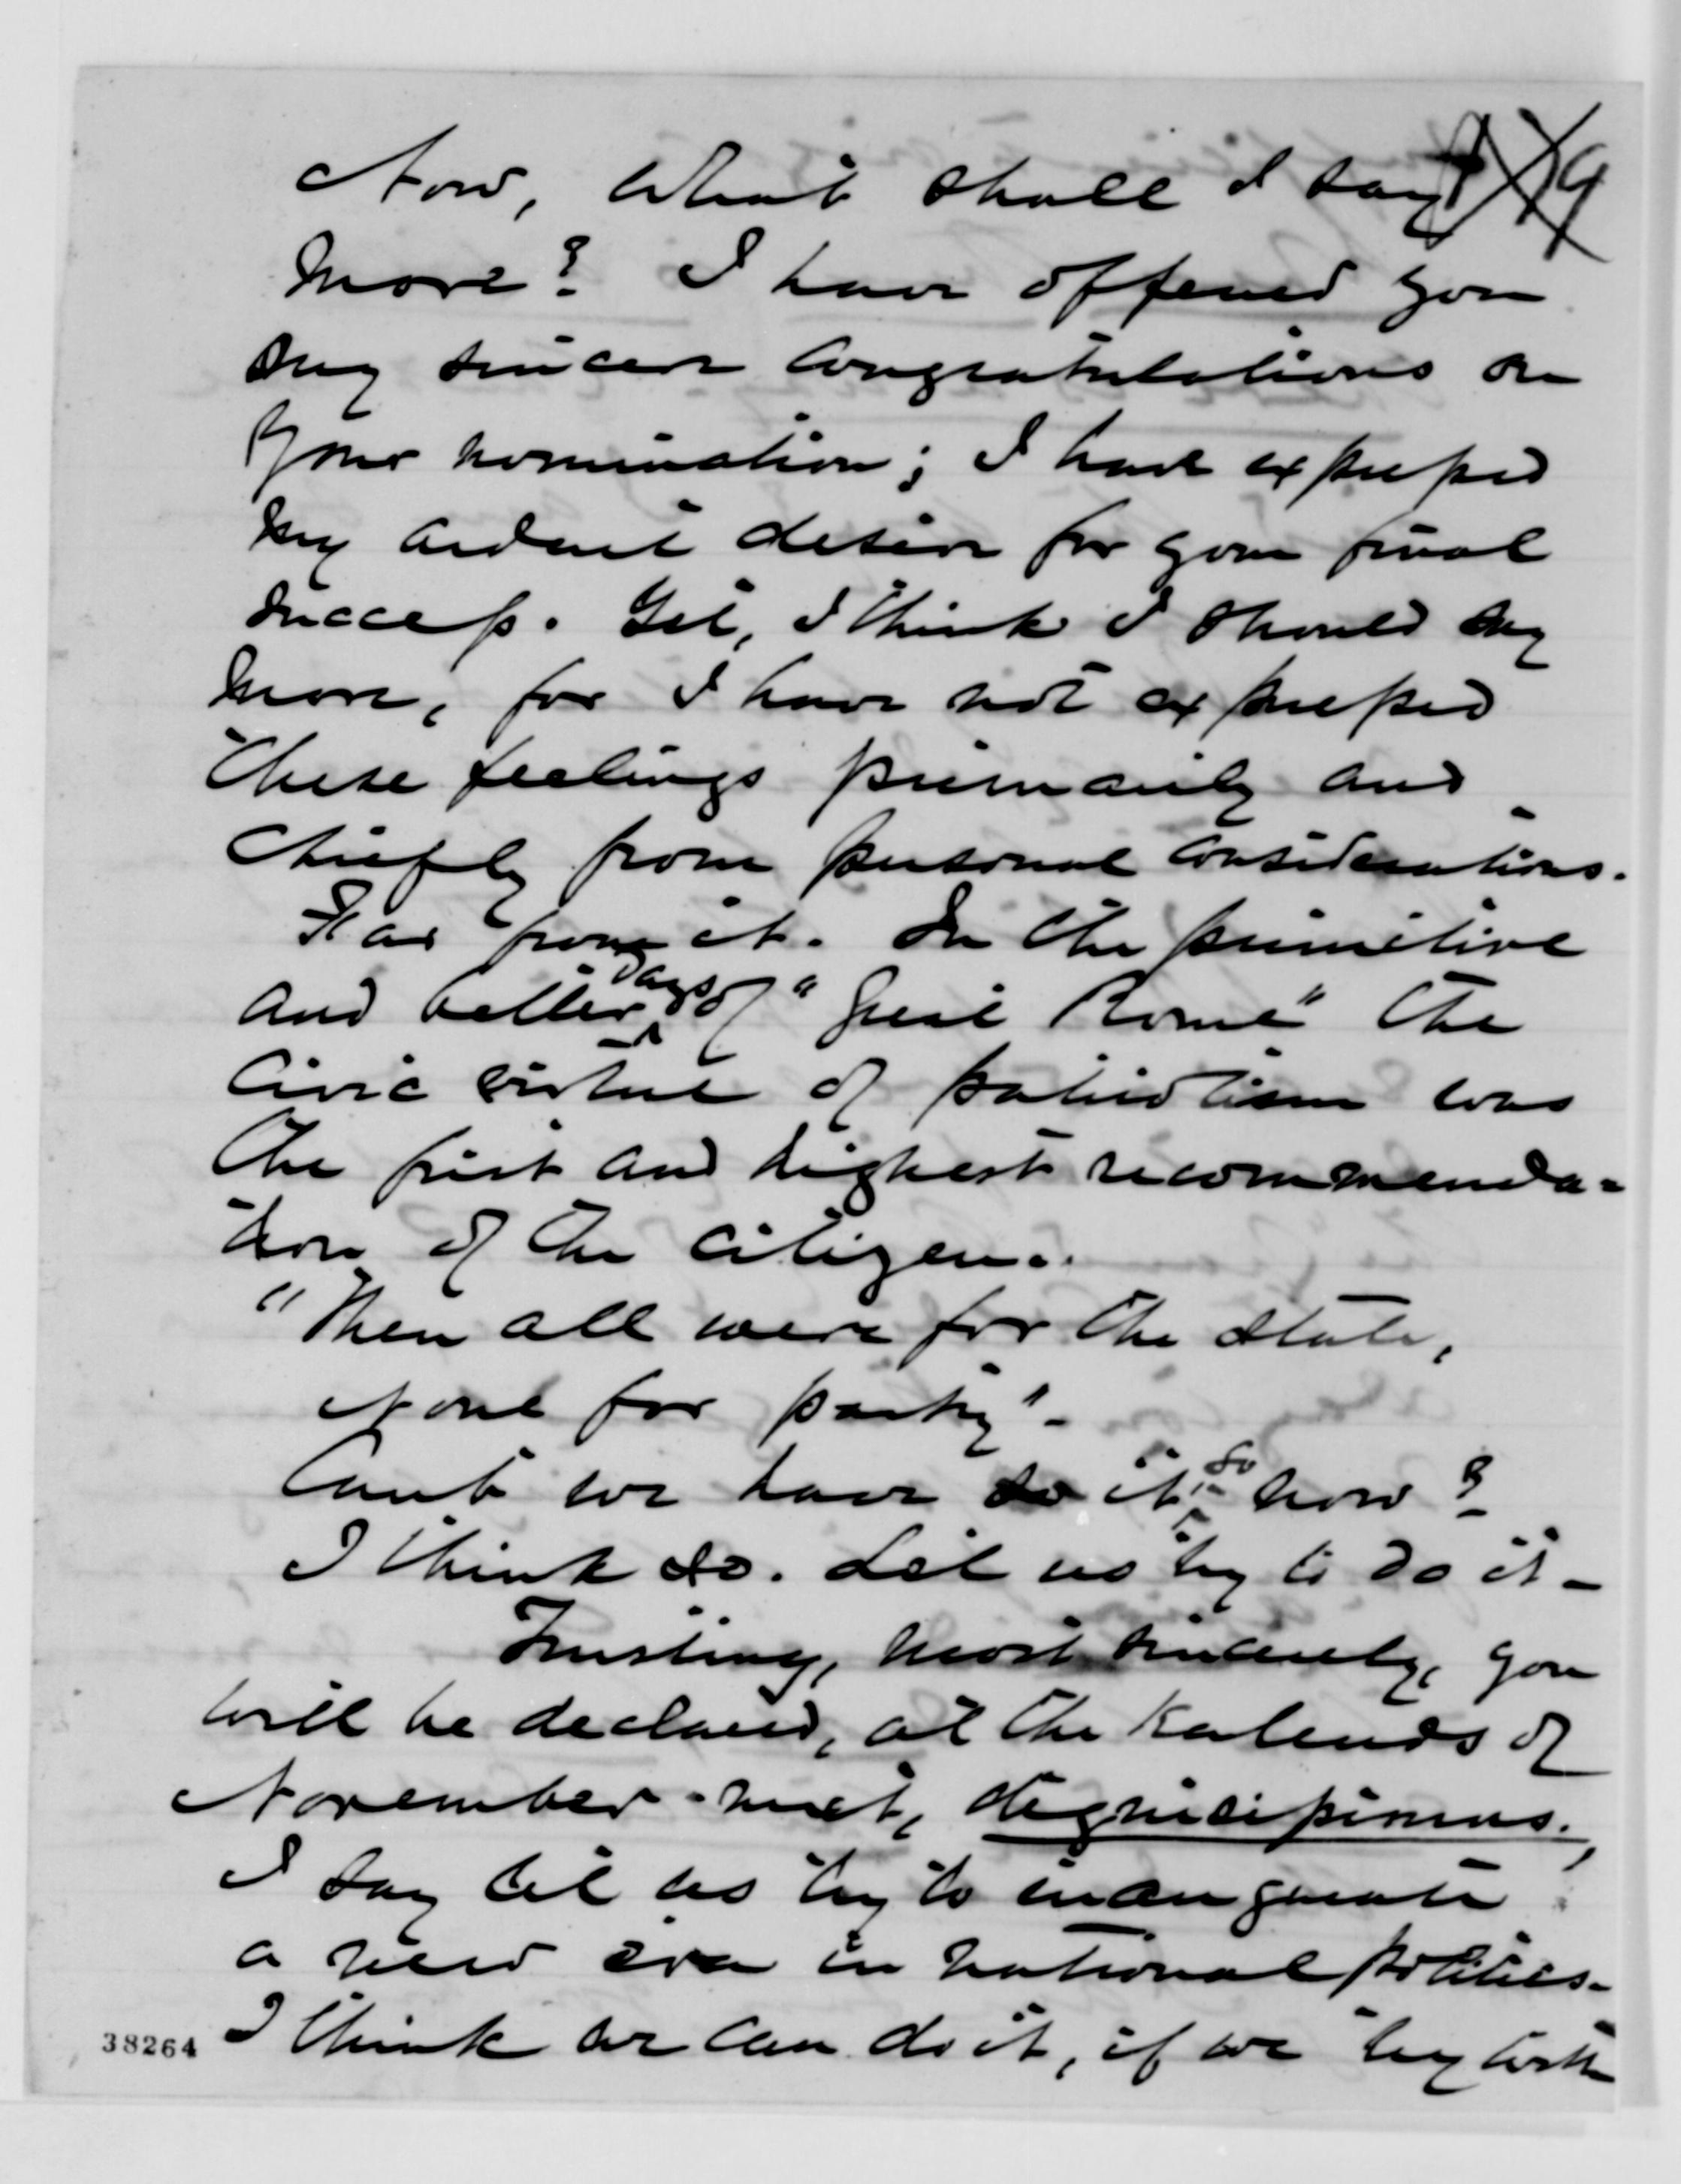 Now, What shall I say
more? I have offered you
my sincere congratulations on
your nomination; I have expressed
my ardent desire for your final
success. Yet, I think I should say
more, for I have not expressed
these feelings primarily and
chiefly from personal considerations.
Far from it. In the primitive
and better days of "Great Rome" the
civic virtue of patriotism was
the first and highest recommenda-
tion of the citizen.
"Then all were for the state,
None for party"-
Cant we have it so now?
I think so. Let us try to do it-
Trusting, most sincerely, you
will be declared, at the Kalends of
November-next, dignissimus,
I say let us try to inaugurate
a new era in national politics-
I think we can do it, if we try with
38264